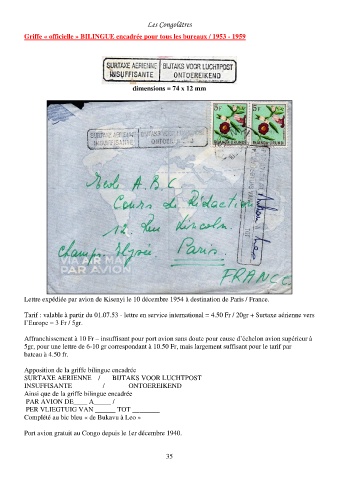 Les Congolâtres
Griffe « officielle » BILINGUE encadrée pour tous les bureaux / 1953 - 1959
SURTAXE AERIENNE BIJTAKS VOOR LUCHTPOST
INSUFFISANTE ONTOEREIKEND
dimensions = 74 x 12 mm
Ecole A.B.C
Cours de Rédaction
12, Rue Lincoln.
Champs Elysée. Paris.
VIA AIR MAIL
PAR AVION
FRANCE
Lettre expédiée par avion de Kisenyi le 10 décembre 1954 à destination de Paris / France.
Tarif : valable à partir du 01.07.53 - lettre en service international = 4.50 Fr / 20gr + Surtaxe aérienne vers
l'Europe = 3 Fr / 5gr.
Affranchissement à 10 Fr – insuffisant pour port avion sans doute pour cause d'échelon avion supérieur à
5gr, pour une lettre de 6-10 gr correspondant à 10.50 Fr, mais largement suffisant pour le tarif par
bateau à 4.50 fr.
Apposition de la griffe bilingue encadrée
SURTAXE AERIENNE / BIJTAKS VOOR LUCHTPOST
INSUFFISANTE / ONTOEREIKEND
Ainsi que de la griffe bilingue encadrée
PAR AVION DE____ A_____ /
PER VLIEGTUIG VAN ______ TOT ________
Complété au bic bleu « de Bukavu à Leo »
Port avion gratuit au Congo depuis le 1er décembre 1940.
35